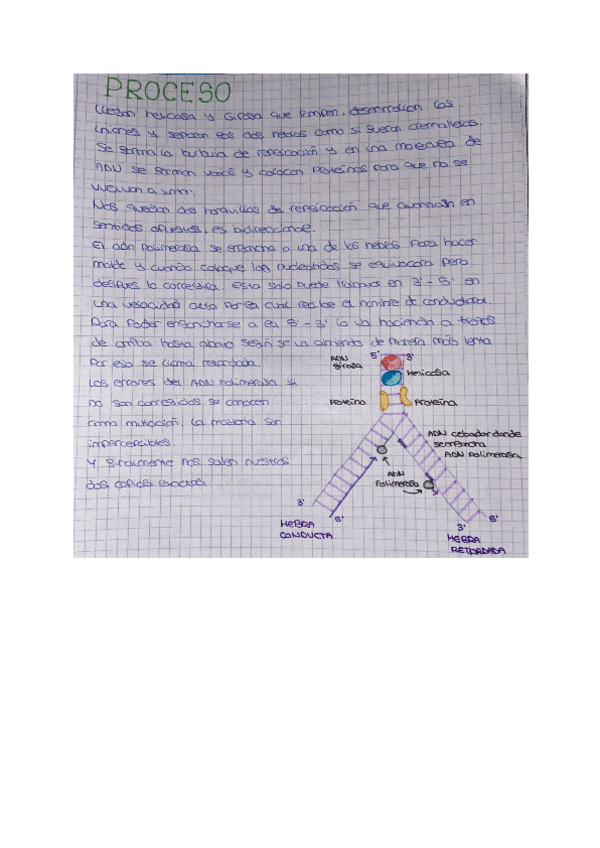 PROCESO
Llegan helicasa y Girasa que rompen, desenrrollan las
uniones y separan las dos hebras como si fueran cremalleras.
Se forma la burbuja de replicación y en una molécula de
ADN se forman varias y colocan proteínas para que no se
vuelvan a juntar.
Nos quedan dos horquillas de replicación que avanzan en
sentidos opuestos, es bidireccional.
El adn polimerasa se engancha a una de las hebras para hacer
molde y cuando coloque los nucleótidos se equivocara pero
después la corregirá. Esta solo puede trabajar en 3' - 5' en
una velocidad alta por la cual recibe el nombre de conductora.
Para poder engancharse a la 5' - 3' lo va haciendo a trozos
de arriba hasta abajo según se va abriendo de manera más lenta
Por eso se llama retardada.
Los errores del ADN polimerasa si
no son corregidos se conocen
como mutación, la mayoría son
imperceptibles.
Y finalmente nos salen nuestras
dos copias exactas
ADN girasa
5'
3'
Helicasa
Proteína
Proteína
ADN cebador donde
se engancha
ADN Polimerasa
ADN
Polimerasa
3'
5'
HEBRA
CONDUCTA
3'
5'
HEBRA
RETARDADA